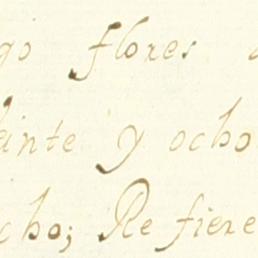 go flores
ainte y ocho
cho; Refiere